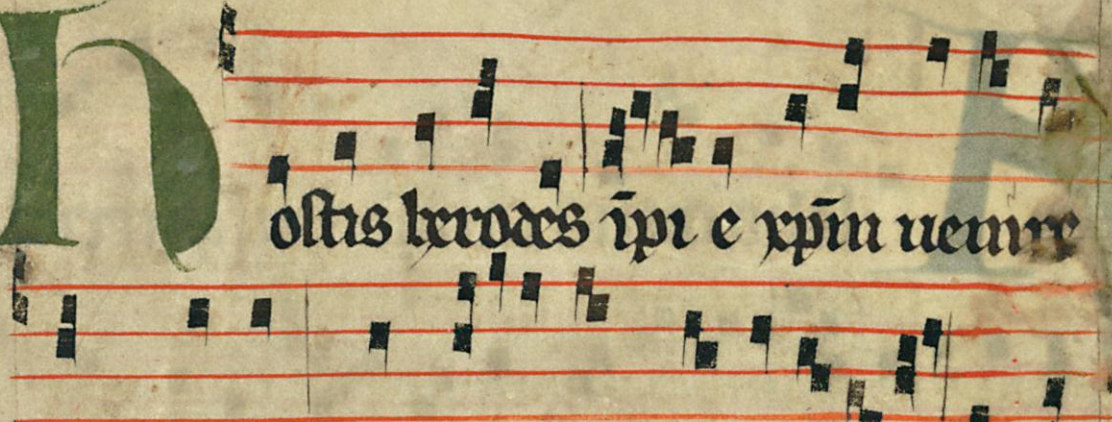 Hostis herodes īpi e xp̄m uenire